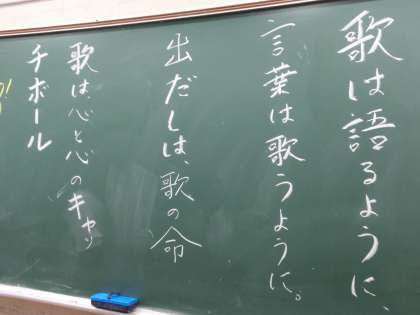 歌は語るように、
言葉は歌うように。
出だしは、歌の命
歌は、心と心のキャッ
チボール